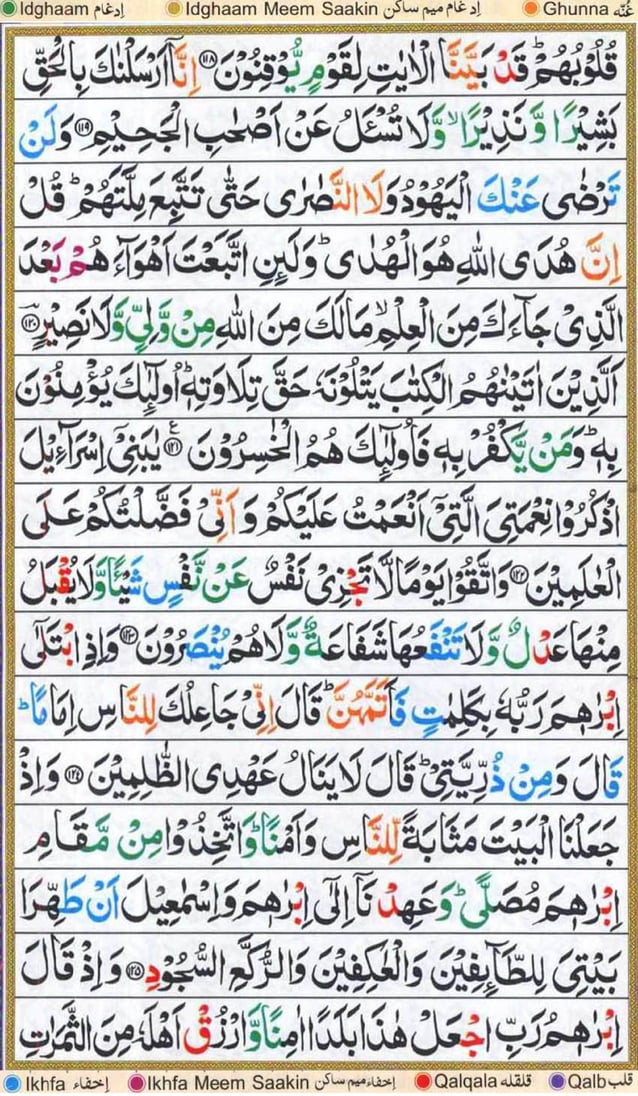 Idghaam ادغام Idghaam Meem Saakin ادغام میم ساکن Ghunna غُنَّه
قُلُوْبُهُمْ ؕ قَدْ بَيَّنَّا الْاٰيٰتِ لِقَوْمٍ يُّوْقِنُوْنَ ﴿۱۱۸﴾ اِنَّاۤ اَرْسَلْنٰكَ بِالْحَقِّ
بَشِيْرًا وَّ نَذِيْرًا ۙ وَّ لَا تُسْـَٔلُ عَنْ اَصْحٰبِ الْجَحِيْمِ ﴿۱۱۹﴾ وَ لَنْ
تَرْضٰى عَنْكَ الْيَهُوْدُ وَ لَا النَّصٰرٰى حَتّٰى تَتَّبِعَ مِلَّتَهُمْ ؕ قُلْ
اِنَّ هُدَى اللّٰهِ هُوَ الْهُدٰى ؕ وَ لَىِٕنِ اتَّبَعْتَ اَهْوَآءَهُمْ بَعْدَ
الَّذِيْ جَآءَكَ مِنَ الْعِلْمِ ۙ مَا لَكَ مِنَ اللّٰهِ مِنْ وَّلِيٍّ وَّ لَا نَصِيْرٍ ﴿۱۲۰﴾
اَلَّذِيْنَ اٰتَيْنٰهُمُ الْكِتٰبَ يَتْلُوْنَهٗ حَقَّ تِلَاوَتِهٖ ؕ اُولٰٓىِٕكَ يُؤْمِنُوْنَ
بِهٖ ؕ وَ مَنْ يَّكْفُرْ بِهٖ فَاُولٰٓىِٕكَ هُمُ الْخٰسِرُوْنَ ﴿۱۲۱﴾ ع يٰبَنِيْۤ اِسْرَآءِيْلَ
اذْكُرُوْا نِعْمَتِيَ الَّتِيْۤ اَنْعَمْتُ عَلَيْكُمْ وَ اَنِّيْ فَضَّلْتُكُمْ عَلَى
الْعٰلَمِيْنَ ﴿۱۲۲﴾ وَ اتَّقُوْا يَوْمًا لَّا تَجْزِيْ نَفْسٌ عَنْ نَّفْسٍ شَيْـًٔا وَّ لَا يُقْبَلُ
مِنْهَا عَدْلٌ وَّ لَا تَنْفَعُهَا شَفَاعَةٌ وَّ لَا هُمْ يُنْصَرُوْنَ ﴿۱۲۳﴾ وَ اِذِ ابْتَلٰۤى
اِبْرٰهٖمَ رَبُّهٗ بِكَلِمٰتٍ فَاَتَمَّهُنَّ ؕ قَالَ اِنِّيْ جَاعِلُكَ لِلنَّاسِ اِمَامًا ؕ
قَالَ وَ مِنْ ذُرِّيَّتِيْ ؕ قَالَ لَا يَنَالُ عَهْدِي الظّٰلِمِيْنَ ﴿۱۲۴﴾ وَ اِذْ
جَعَلْنَا الْبَيْتَ مَثَابَةً لِّلنَّاسِ وَ اَمْنًا ؕ وَ اتَّخِذُوْا مِنْ مَّقَامِ
اِبْرٰهٖمَ مُصَلًّى ؕ وَ عَهِدْنَاۤ اِلٰۤى اِبْرٰهٖمَ وَ اِسْمٰعِيْلَ اَنْ طَهِّرَا
بَيْتِيَ لِلطَّآىِٕفِيْنَ وَ الْعٰكِفِيْنَ وَ الرُّكَّعِ السُّجُوْدِ ﴿۱۲۵﴾ وَ اِذْ قَالَ
اِبْرٰهٖمُ رَبِّ اجْعَلْ هٰذَا بَلَدًا اٰمِنًا وَّ ارْزُقْ اَهْلَهٗ مِنَ الثَّمَرٰتِ
Ikhfa إخفاء Ikhfa Meem Saakin إخفاء میم ساکن Qalqala قلقله Qalb قلب